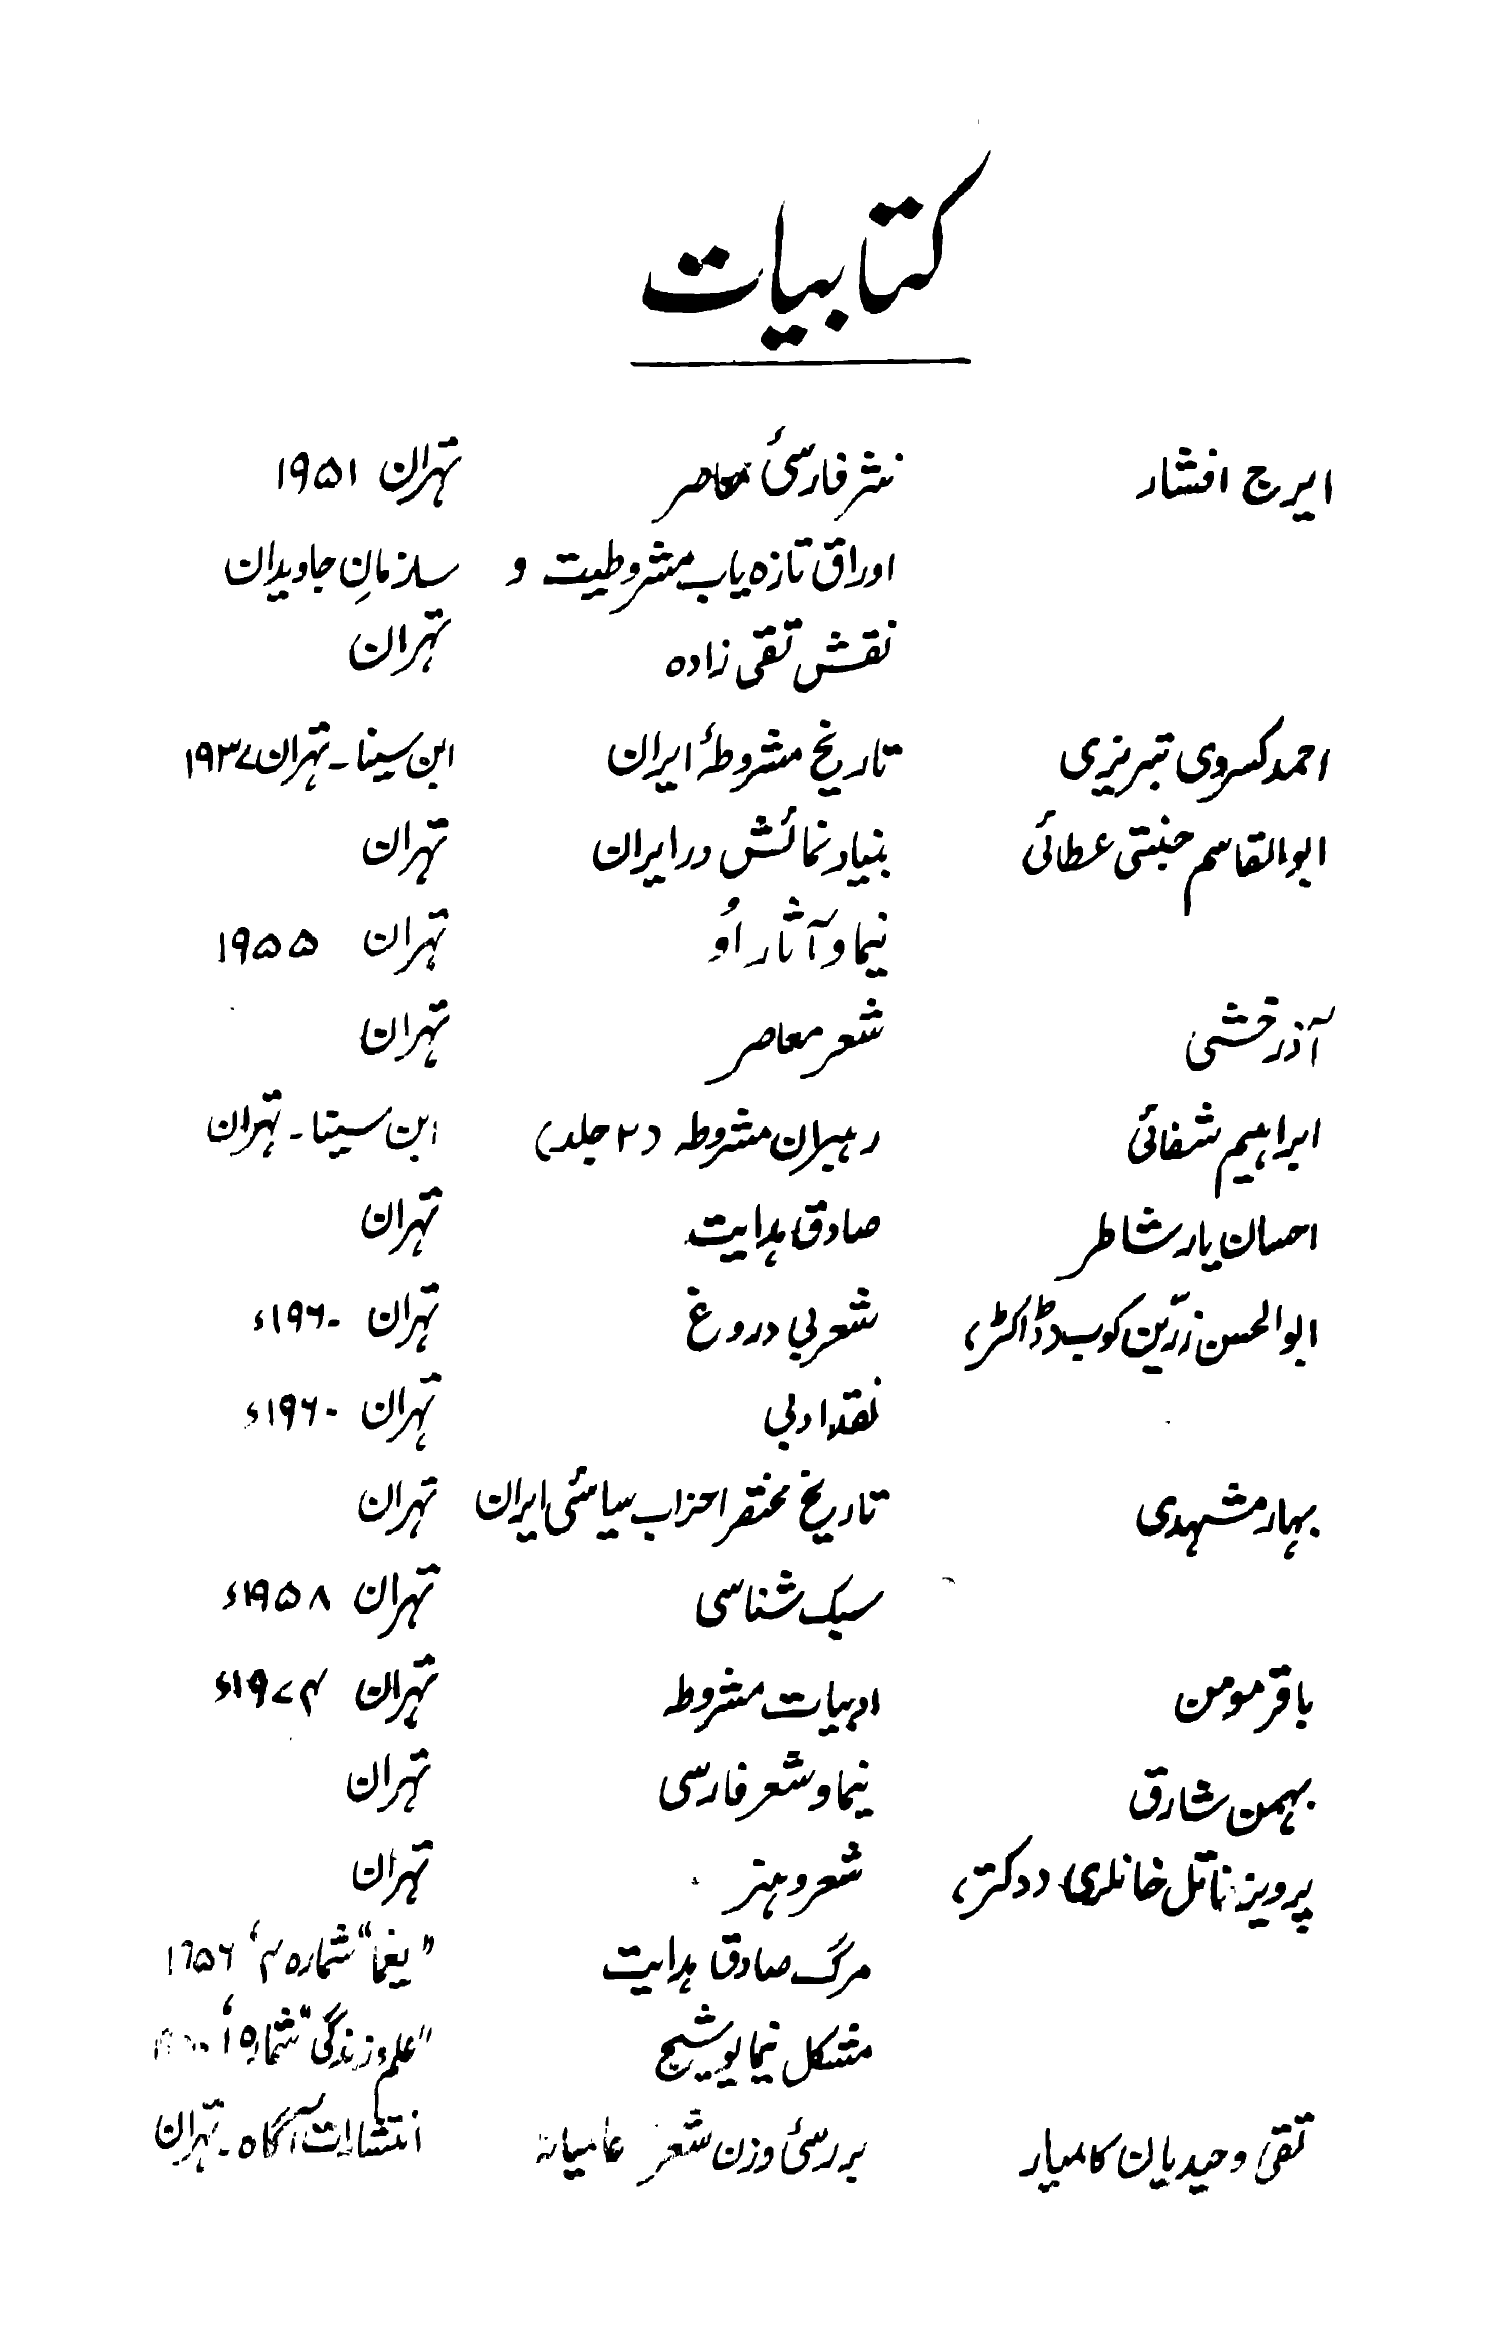 کتابیات
ایرج افشار نثر فارسیٔ معاصر تہران ۱۹۵۱
اوراق تازہ یاب مشروطیت و سازمانِ جاویدان
نقش تقی زادہ تہران
احمد کسروی تبریزی تاریخ مشروطۂ ایران ابن سینا۔ تہران ۱۹۳۷
ابوالقاسم جنتی عطائی بنیاد نمائش در ایران تہران
نیما و آثار اُو تہران ۱۹۵۵
آذرخشی شعر معاصر تہران
ابراہیم شفائی رہبران مشروطہ (۲ جلد) ابن سینا۔ تہران
احسان یار شاطر صادق ہدایت تہران
ابوالحسن زرّین کوب (ڈاکٹر) شعر بی دروغ تہران ۱۹۶۰ء
نقد ادبی تہران ۱۹۶۰ء
بہار مشہدی تاریخ مختصر احزاب سیاسیٔ ایران تہران
سبک شناسی تہران ۱۹۵۸ء
باقر مومن ادبیات مشروطہ تہران ۱۹۷۴ء
بہمن شارق نیما و شعر فارسی تہران
پرویز ناتل خانلری (دکتر) شعر و ہنر تہران
مرگ صادق ہدایت "یغما" شمارہ ۴،
مشکل نیما یوشیج "علم و زندگی" شمارہ
تقی وحیدیان کامیار بررسیٔ وزن شعر عامیانہ انتشارات آگاہ۔ تہران